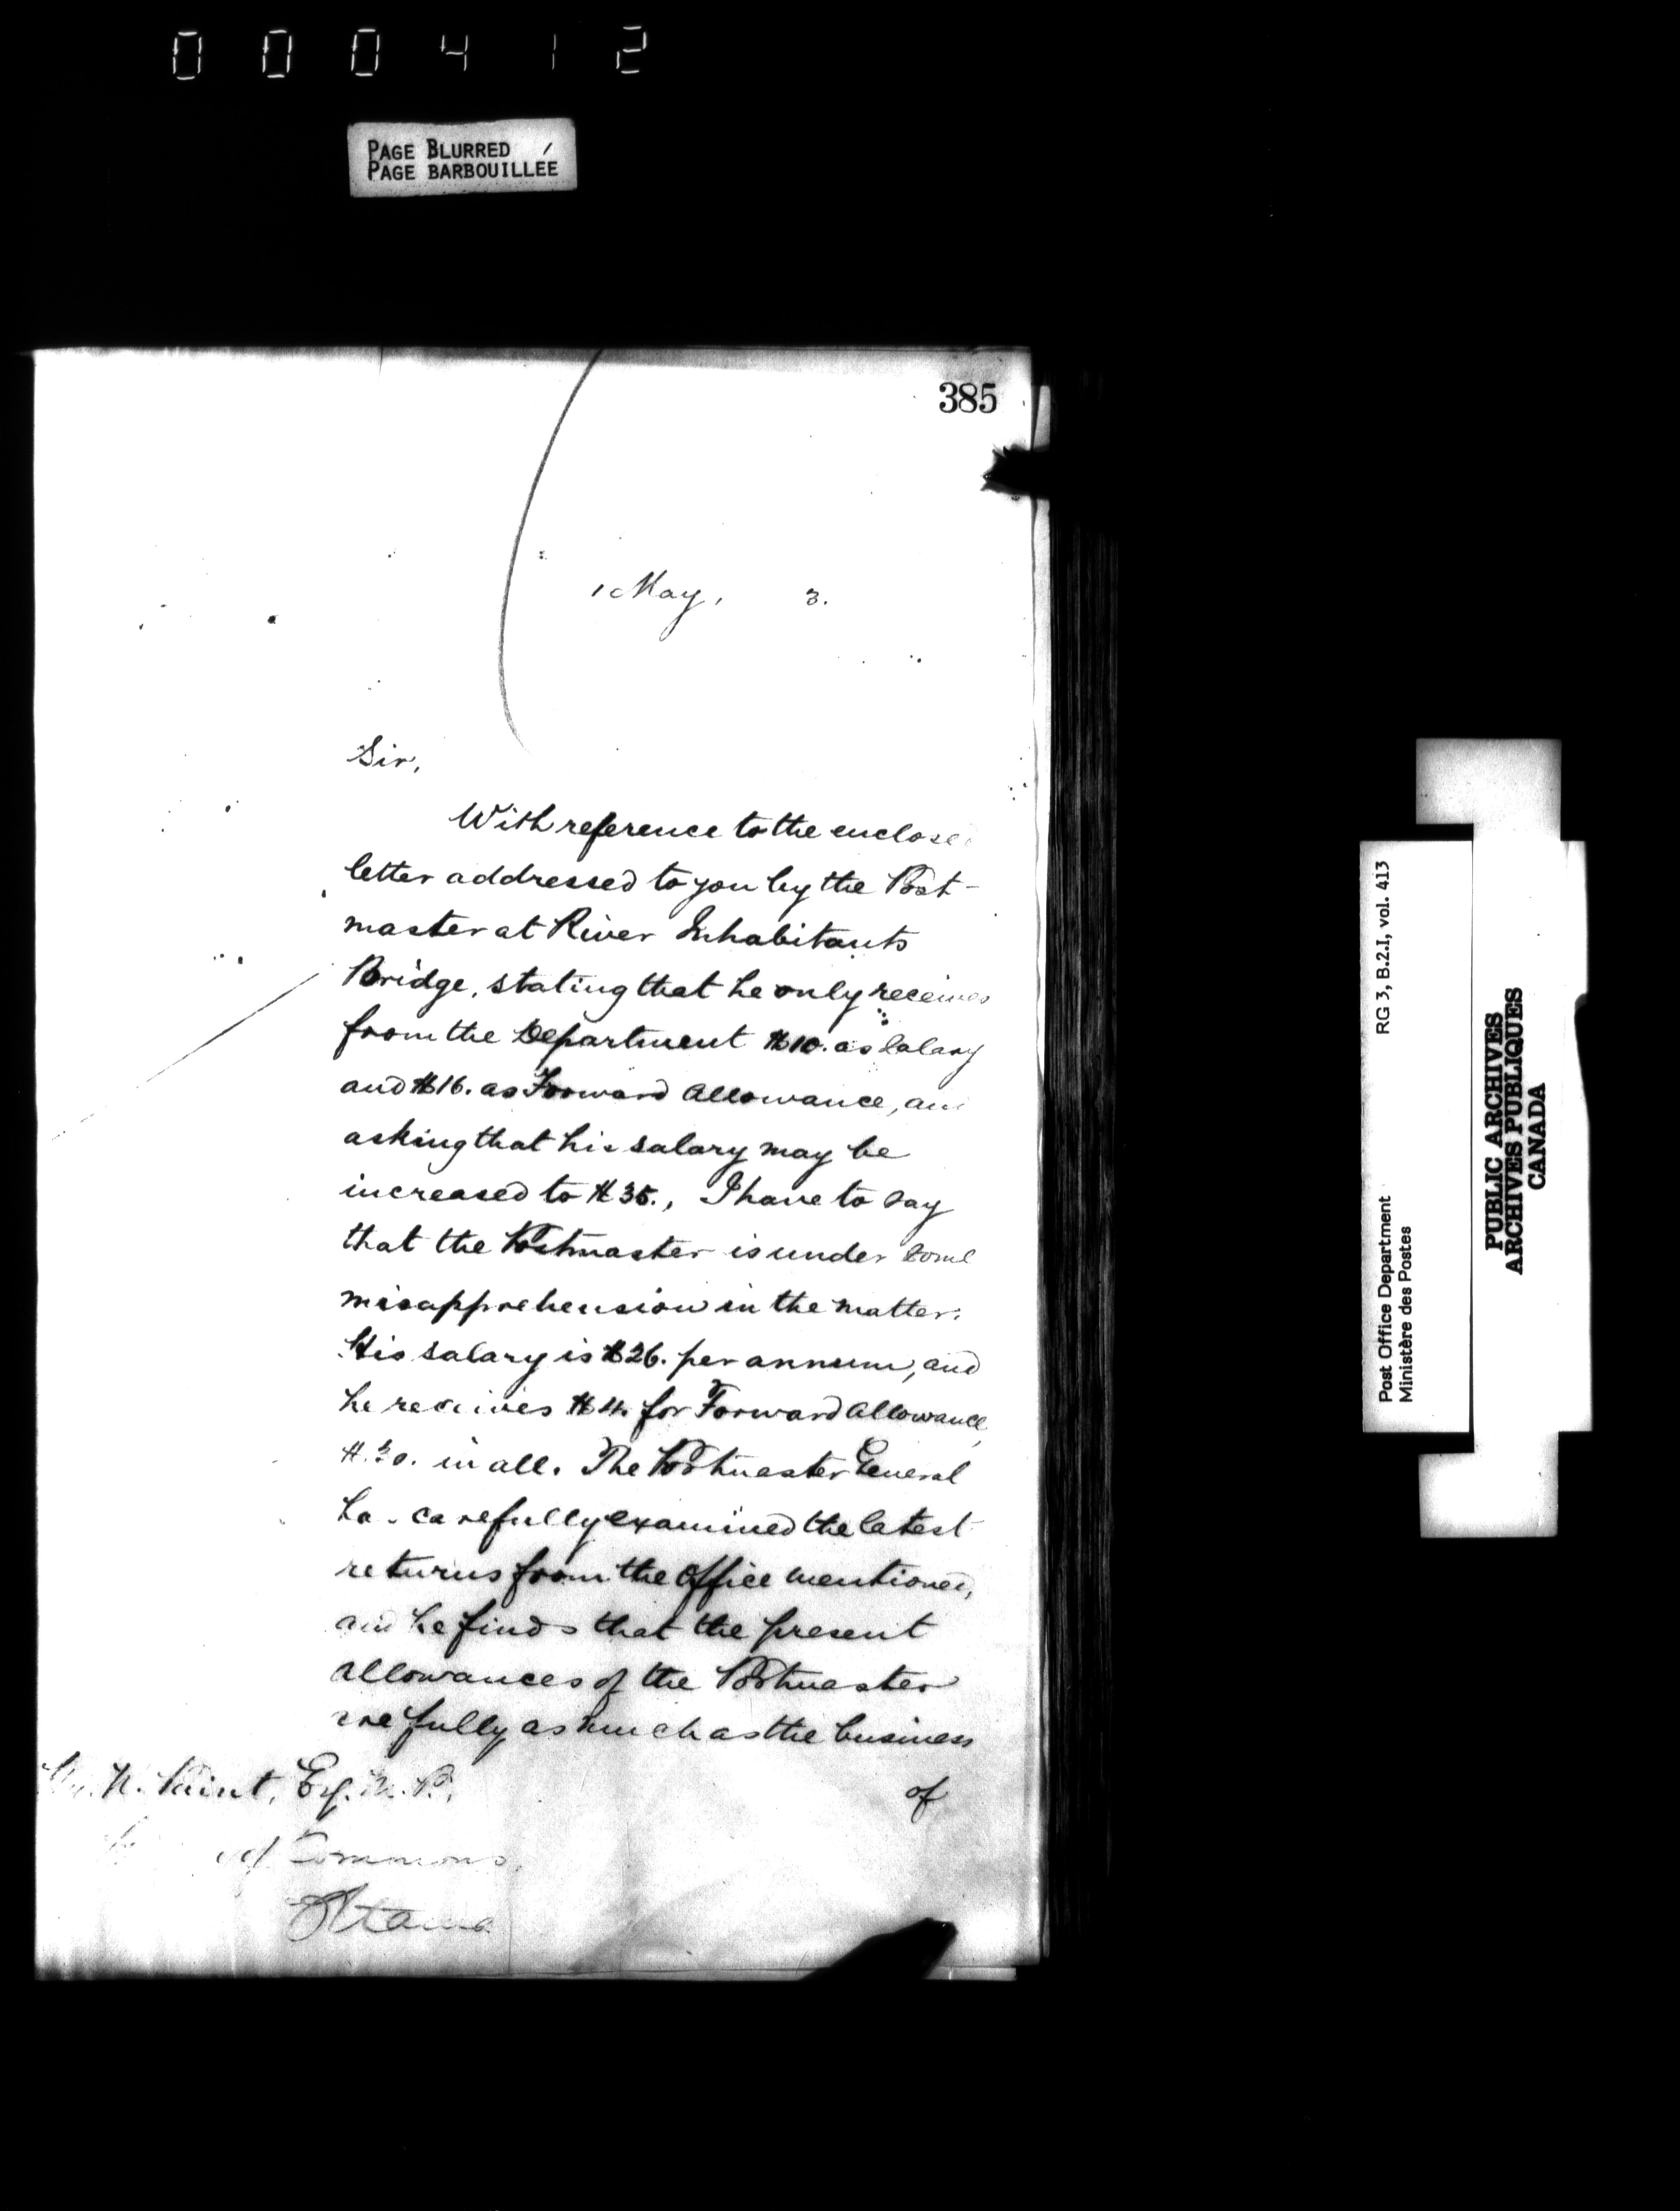 000412
PAGE BLURRED
PAGE BARBOUILLÉE
385
1 May, 3.
Sir,
With reference to the enclosed
letter addressed to you by the Post-
master at River Inhabitants
Bridge, stating that he only receives
from the Department $10. as Salary
and $16. as Forward Allowance, and
asking that his salary may be
increased to $35., I have to say
that the Postmaster is under some
misapprehension in the matter.
His salary is $26. per annum, and
he receives $4. for Forward Allowance,
$30. in all. The Postmaster General
has carefully examined the latest
returns from the Office mentioned,
and he finds that the present
allowances of the Postmaster
are fully as much as the business
of
N. Paint, Esq. M.P.,
of Commons,
Ottawa
Post Office Department RG 3, B.2.I, vol. 413
Ministère des Postes
PUBLIC ARCHIVES
ARCHIVES PUBLIQUES
CANADA